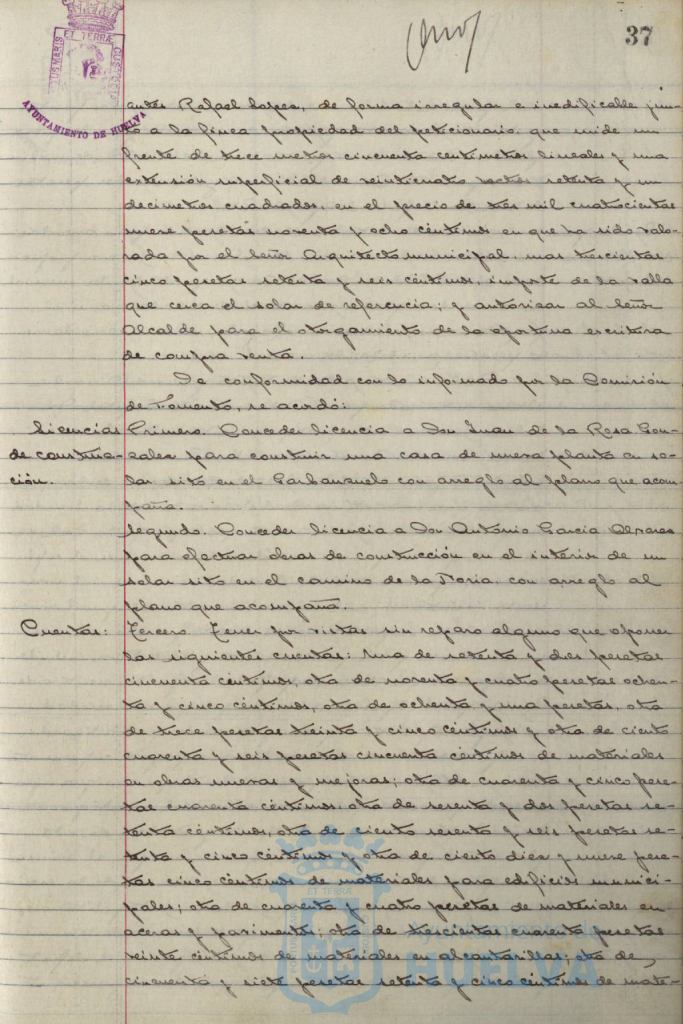 37
ET TERRÆ
US MARIS
CUSTODIA
AYUNTAMIENTO DE HUELVA
antes Rafael Lopez, de forma irregular e inedificable jun-
to a la finca propiedad del peticionario, que mide un
frente de trece metros cincuenta centimetros lineales y una
extensión superficial de veinticuatro metros setenta y un
decimetros cuadrados, en el precio de tres mil cuatrocientas
nueve pesetas noventa y ocho céntimos en que ha sido valo-
rada por el Señor Arquitecto municipal, mas trescientas
cinco pesetas setenta y seis céntimos, importe de la valla
que cerca el solar de referencia; y autorizar al Señor
Alcalde para el otorgamiento de la oportuna escritura
de compra venta.
De conformidad con lo informado por la Comisión
de Fomento, se acordó:
Licencias
de construc-
ción.
Primero. Conceder licencia a Don Juan de la Rosa Gon-
zales para construir una casa de nueva planta en so-
lar sito en el Garbanzuelo con arreglo al plano que acom-
paña.
Segundo. Conceder licencia a Don Antonio Garcia Alvarez
para efectuar obras de construcción en el interior de un
solar sito en el camino de la Noria, con arreglo al
plano que acompaña.
Cuentas:
Tercero. Tener por vistas sin reparo alguno que oponer
las siguientes cuentas: Una de setenta y dos pesetas
cincuenta céntimos, otra de noventa y cuatro pesetas ochen-
ta y cinco céntimos, otra de ochenta y una pesetas, otra
de trece pesetas treinta y cinco céntimos y otra de ciento
cuarenta y seis pesetas cincuenta céntimos de materiales
en obras nuevas y mejoras; otra de cuarenta y cinco pese-
tas cuarenta céntimos, otra de sesenta y dos pesetas se-
tenta céntimos, otra de ciento sesenta y seis pesetas se-
tenta y cinco céntimos y otra de ciento diez y nueve pese-
tas cinco céntimos de materiales para edificios munici-
pales; otra de cuarenta y cuatro pesetas de materiales en
aceras y pavimentos; otra de trescientas cuarenta pesetas
veinte céntimos de materiales en alcantarillas; otra de
cincuenta y siete pesetas setenta y cinco céntimos de mate-
HUELVA